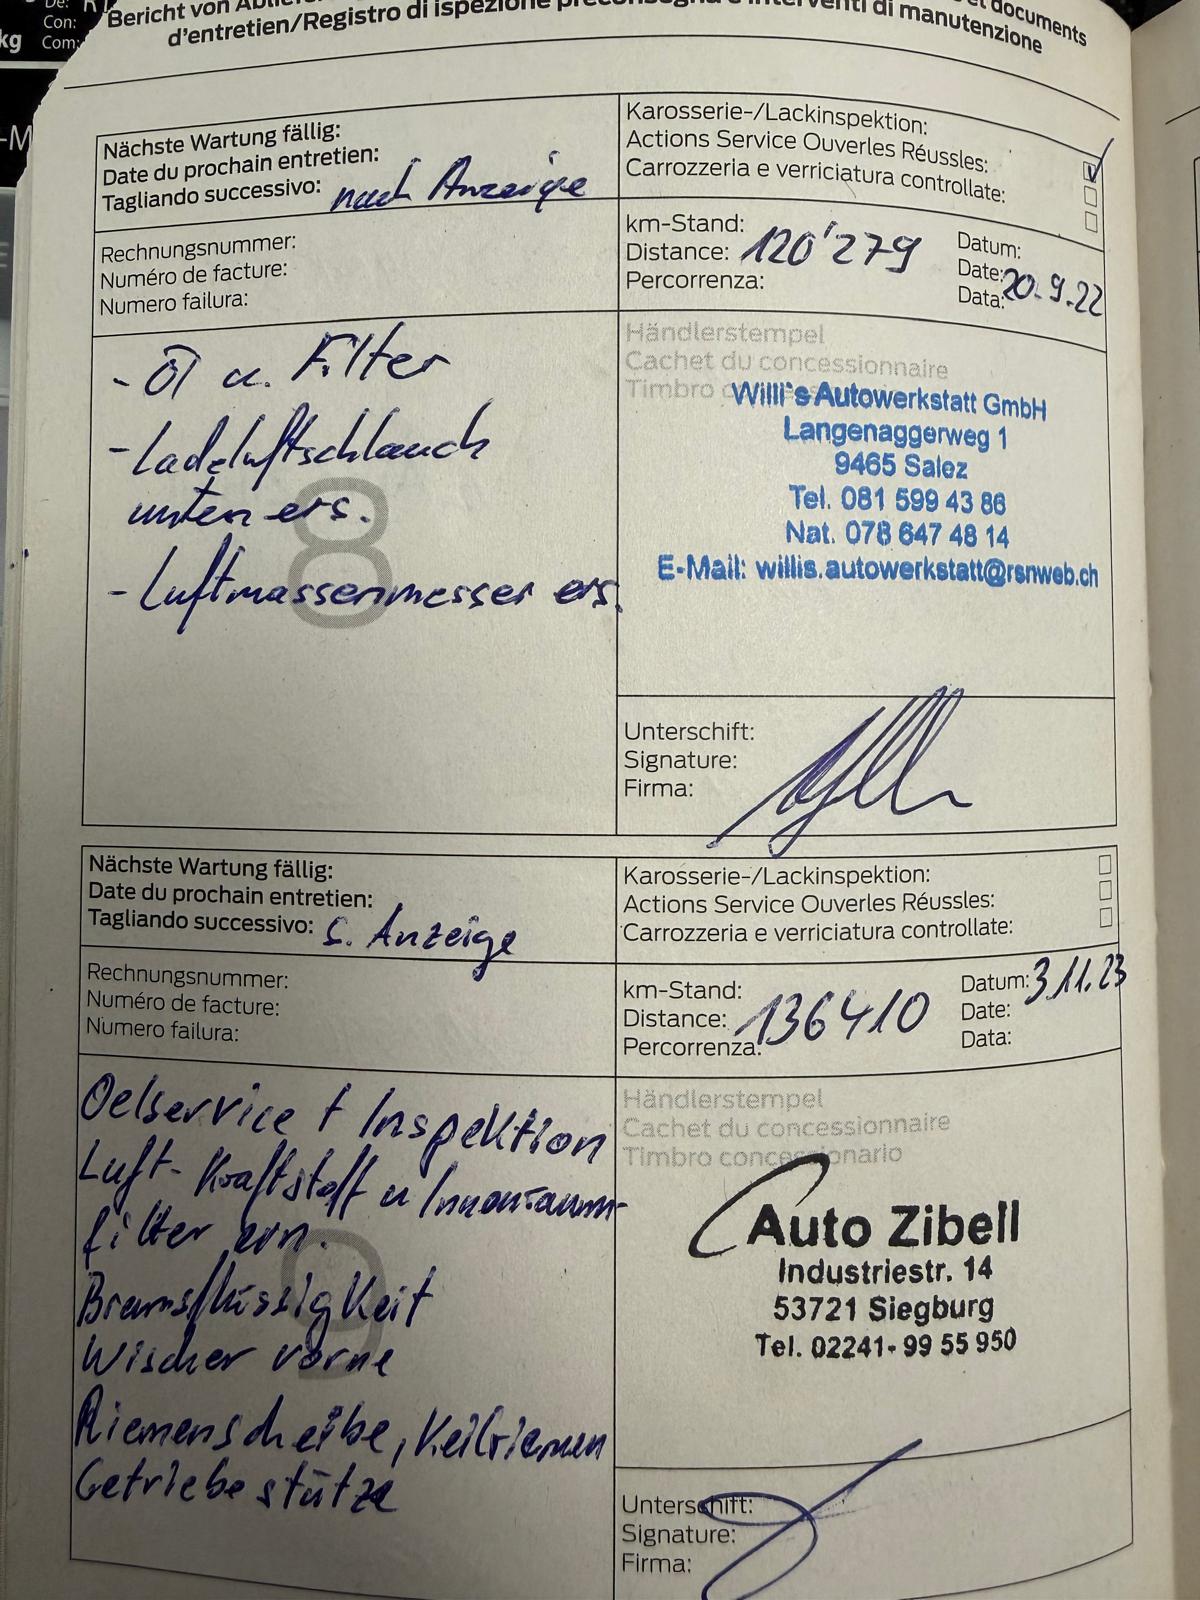 De:
Con:
kg Com:
-M
Bericht von
et documents
d'entretien/Registro di ispezione preconsegna e interventi di manutenzione
Nächste Wartung fällig:
Date du prochain entretien:
Tagliando successivo: nach Anzeige
Karosserie-/Lackinspektion:
Actions Service Ouverles Réussles:
Carrozzeria e verriciatura controllate:
Rechnungsnummer:
Numéro de facture:
Numero failura:
km-Stand:
Distance: 120'279
Percorrenza:
Datum:
Date:
Data: 20.9.22
- Öl u. Filter
- Ladeluftschlauch
unten ers.
- Luftmassenmesser ers.
8
Händlerstempel
Cachet du concessionnaire
Timbro
Willi's Autowerkstatt GmbH
Langenaggerweg 1
9465 Salez
Tel. 081 599 43 86
Nat. 078 647 48 14
E-Mail: willis.autowerkstatt@rsnweb.ch
Unterschift:
Signature:
Firma:
Nächste Wartung fällig:
Date du prochain entretien:
Tagliando successivo: s. Anzeige
Karosserie-/Lackinspektion:
Actions Service Ouverles Réussles:
Carrozzeria e verriciatura controllate:
Rechnungsnummer:
Numéro de facture:
Numero failura:
km-Stand:
Distance: 136410
Percorrenza:
Datum: 3.11.23
Date:
Data:
Oelservice + Inspektion
Luft- Kraftstoff u Innenraum-
filter ern.
Bremsflüssigkeit
Wischer vorne
Riemenscheibe, Keilriemen
Getriebestütze
9
Händlerstempel
Cachet du concessionnaire
Timbro concessionario
Auto Zibell
Industriestr. 14
53721 Siegburg
Tel. 02241- 99 55 950
Unterschift:
Signature:
Firma: